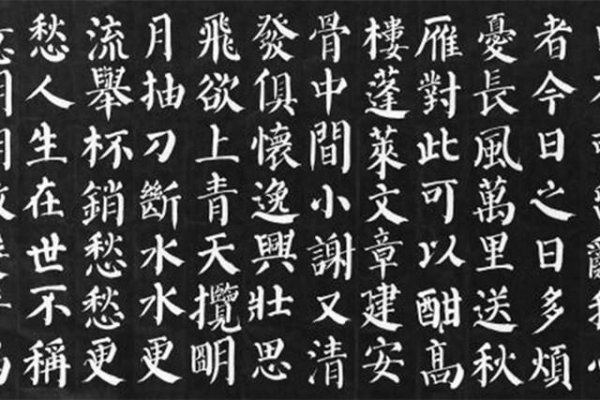 者今日之日多煩
憂長風萬里送秋
雁對此可以酣高
樓蓬萊文章建安
骨中間小謝又清
發俱懷逸興壯思
飛欲上青天攬明
月抽刀斷水水更
流舉杯銷愁愁更
愁人生在世不稱